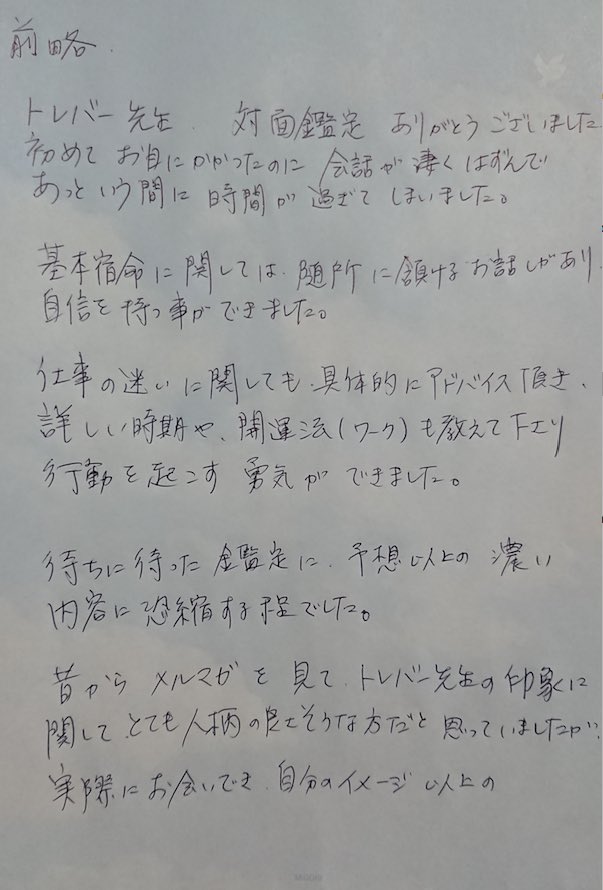 前略.
トレバー先生. 対面鑑定 ありがとうございました
初めて お目にかかったのに 会話が凄くはずんで
あっという間に 時間が 過ぎて しまいました。
基本宿命に関しては、随所に頷けるお話しがあり
自信を持つ事ができました。
仕事の迷いに関しても、具体的にアドバイス頂き、
詳しい時期や、開運法(ワーク)も教えて下さり
行動を起こす 勇気が できました。
待ちに待った 鑑定に、予想以上の 濃い
内容に恐縮する程でした。
昔から メルマガを 見て、トレバー先生の印象に
関して、とても人柄の良さそうな方だと 思っていましたが、
実際にお会いでき、自分のイメージ以上の
MIDORI